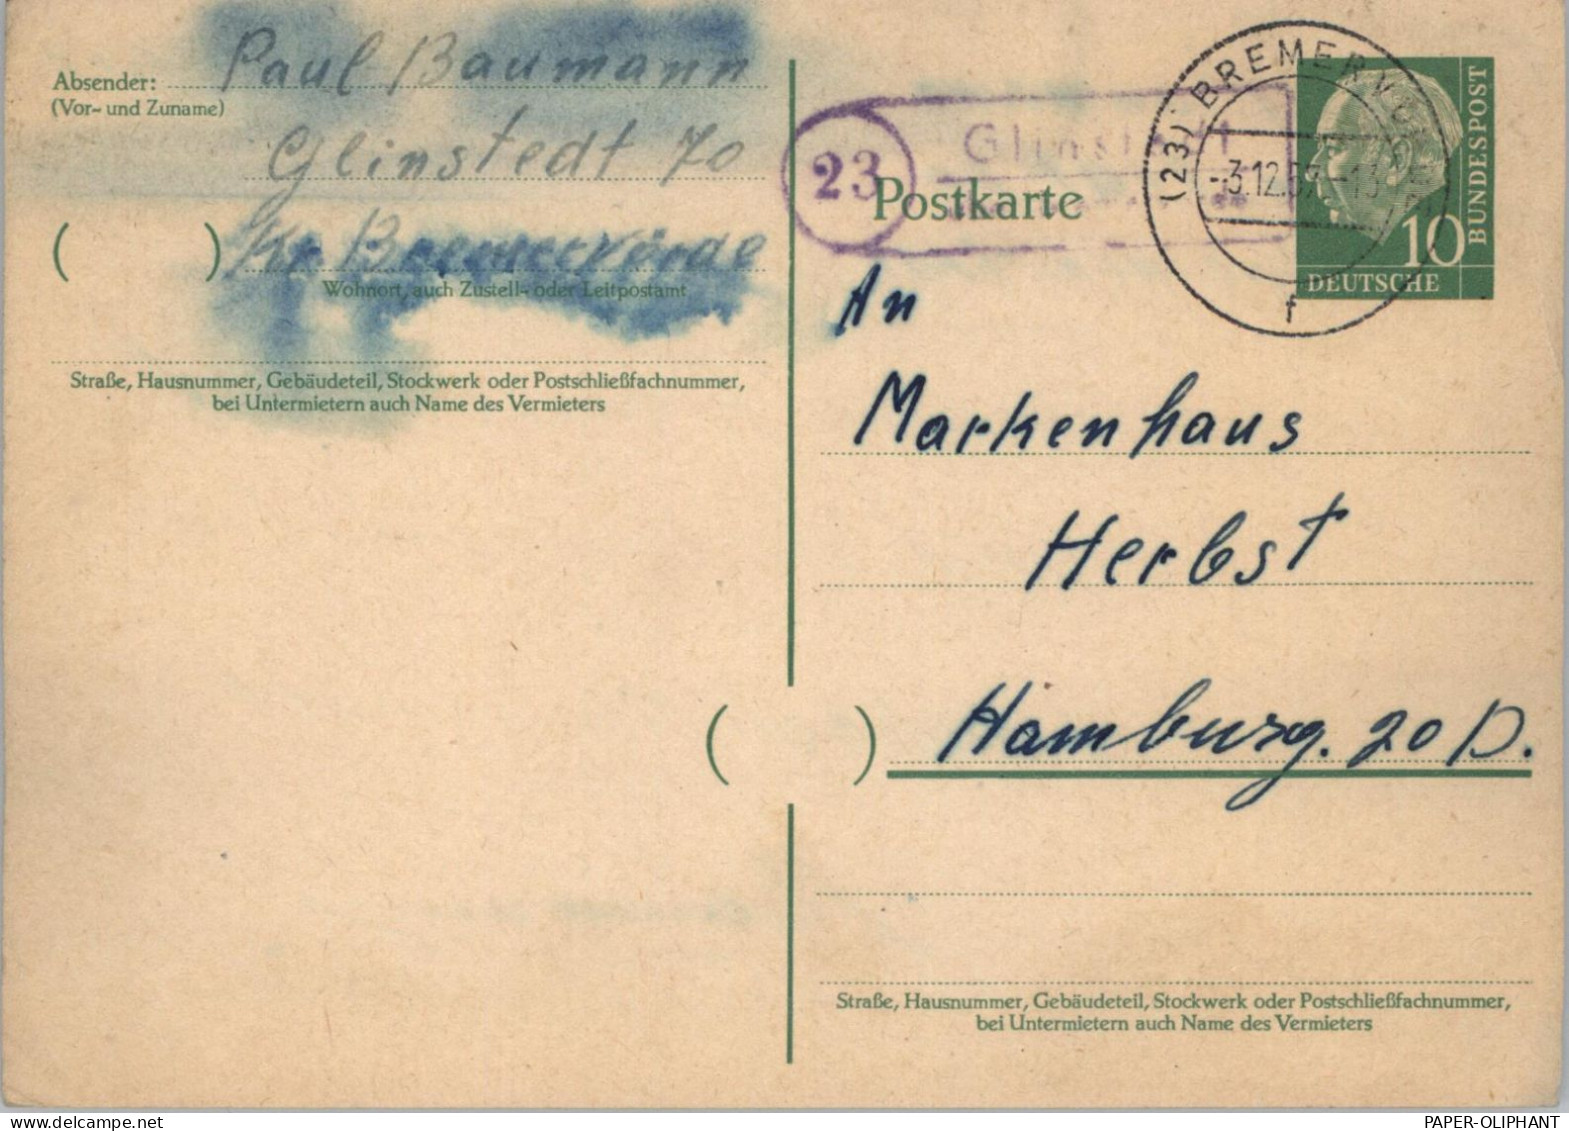 Absender: Paul Baumann
(Vor- und Zuname)
Glinstedt 70
( ) Kr Bremervörde
Wohnort, auch Zustell- oder Leitpostamt
Straße, Hausnummer, Gebäudeteil, Stockwerk oder Postschließfachnummer,
bei Untermietern auch Name des Vermieters
23
Glinstedt
(23) BREMERVÖRDE
-3.12.57
f
10
BUNDESPOST
DEUTSCHE
Postkarte
An
Markenhaus
Herbst
( ) Hamburg. 20 D.
Straße, Hausnummer, Gebäudeteil, Stockwerk oder Postschließfachnummer,
bei Untermietern auch Name des Vermieters
PAPER-OLIPHANT